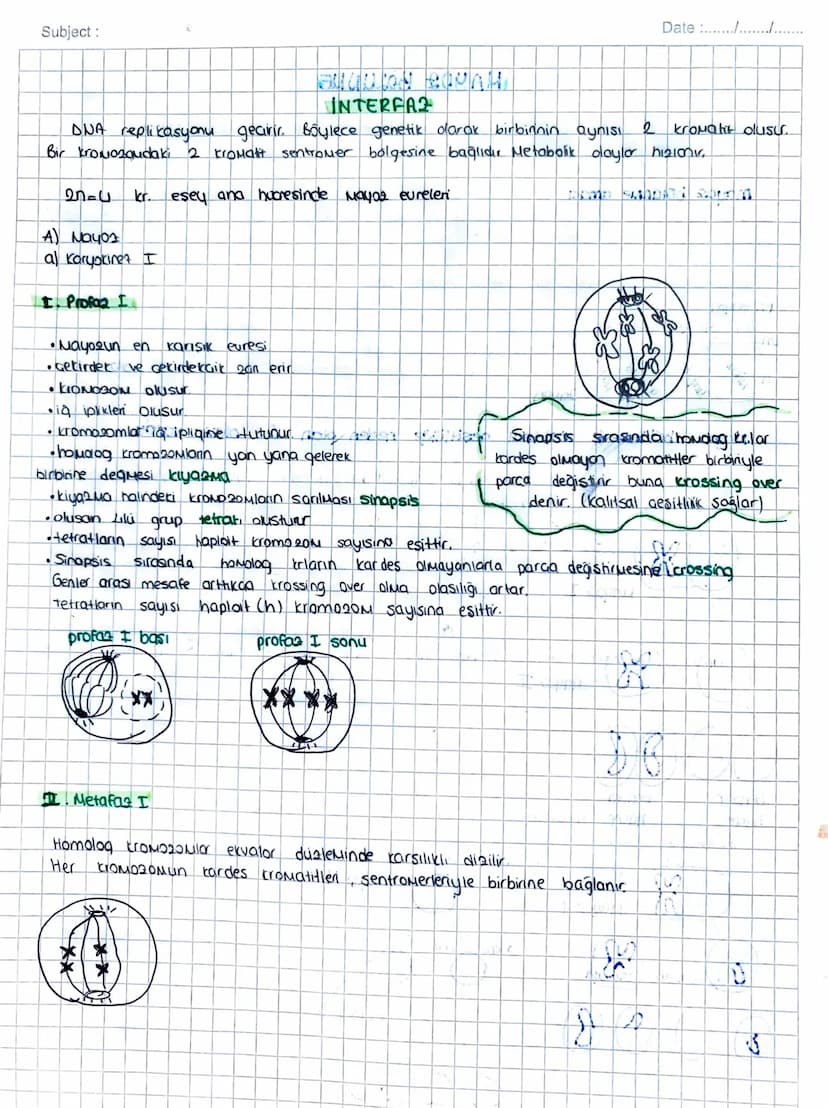 Subject :
Date :......./......./.......
İNTERFAZ
DNA replikasyonu geçirir. Böylece genetik olarak birbirinin aynısı 2 kromatit oluşur.
Bir kromozomdaki 2 kromatit sentromer bölgesine bağlıdır. Metabolik olaylar hızlanır.
2n=4 kr. eşey ana hücresinde Mayoz evreleri
A) Mayoz
a) Karyokinez I
I. Profaz I
• Mayozun en karışık evresi
• çekirdek ve çekirdekçik zarı erir
• kromozom oluşur
• iğ iplikleri oluşur
• kromozomlar iğ ipliğine tutunur
• homolog kromozomların yan yana gelerek
birbirine değmesi kiyazma
• kiyazma halindeki kromozomların sarılması sinapsis
• oluşan 4lü grup tetratı oluşturur
• tetratların sayısı haploit kromozom sayısına eşittir.
• Sinapsis sırasında homolog kr.ların kardeş olmayanlarla parça değiştirmesine crossing
Genler arası mesafe arttıkça krossing over olma olasılığı artar.
Tetratların sayısı haploit (h) kromozom sayısına eşittir.
Sinapsis sırasında homolog kr.lar
kardeş olmayan kromatitler birbiriyle
parça değiştirir buna krossing over
denir. (kalıtsal çeşitlilik sağlar)
profaz I başı
profaz I sonu
II. Metafaz I
Homolog kromozomlar ekvator düzleminde karşılıklı dizilir.
Her kromozomun kardeş kromatitleri, sentromerleriyle birbirine bağlanır.